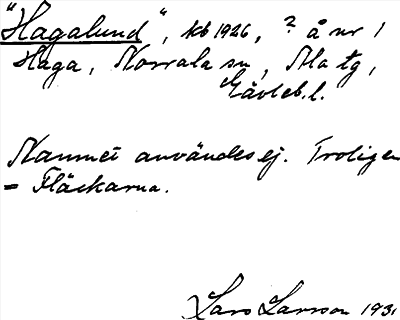 "Hagalund", kb 1926, ? å nr 1
Haga, Norrala sn, Ala tg,
Gävleb.l.
Namnet användes ej. Troligen
= Fläckarna.
Lars Larsson 1931